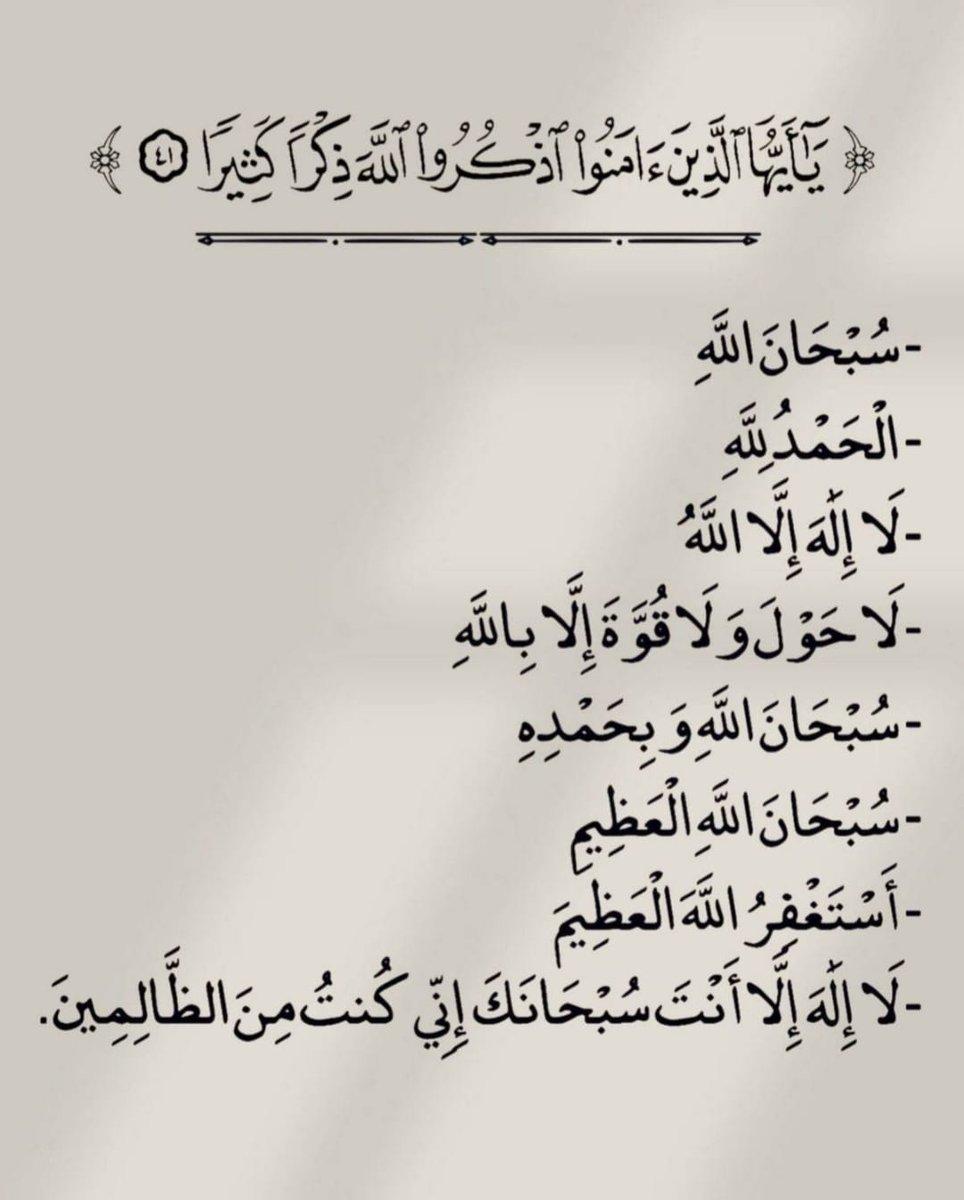 ﴿ يَٰٓأَيُّهَا ٱلَّذِينَ ءَامَنُوا۟ ٱذْكُرُوا۟ ٱللَّهَ ذِكْرًا كَثِيرًا ٤١ ﴾
-سُبْحَانَ اللَّهِ
-الْحَمْدُ لِلَّهِ
-لَا إِلَٰهَ إِلَّا اللَّهُ
-لَا حَوْلَ وَ لَا قُوَّةَ إِلَّا بِاللَّهِ
-سُبْحَانَ اللَّهِ وَ بِحَمْدِهِ
-سُبْحَانَ اللَّهِ الْعَظِيمِ
-أَسْتَغْفِرُ اللَّهَ الْعَظِيمَ
-لَا إِلَٰهَ إِلَّا أَنْتَ سُبْحَانَكَ إِنِّي كُنتُ مِنَ الظَّالِمِينَ.